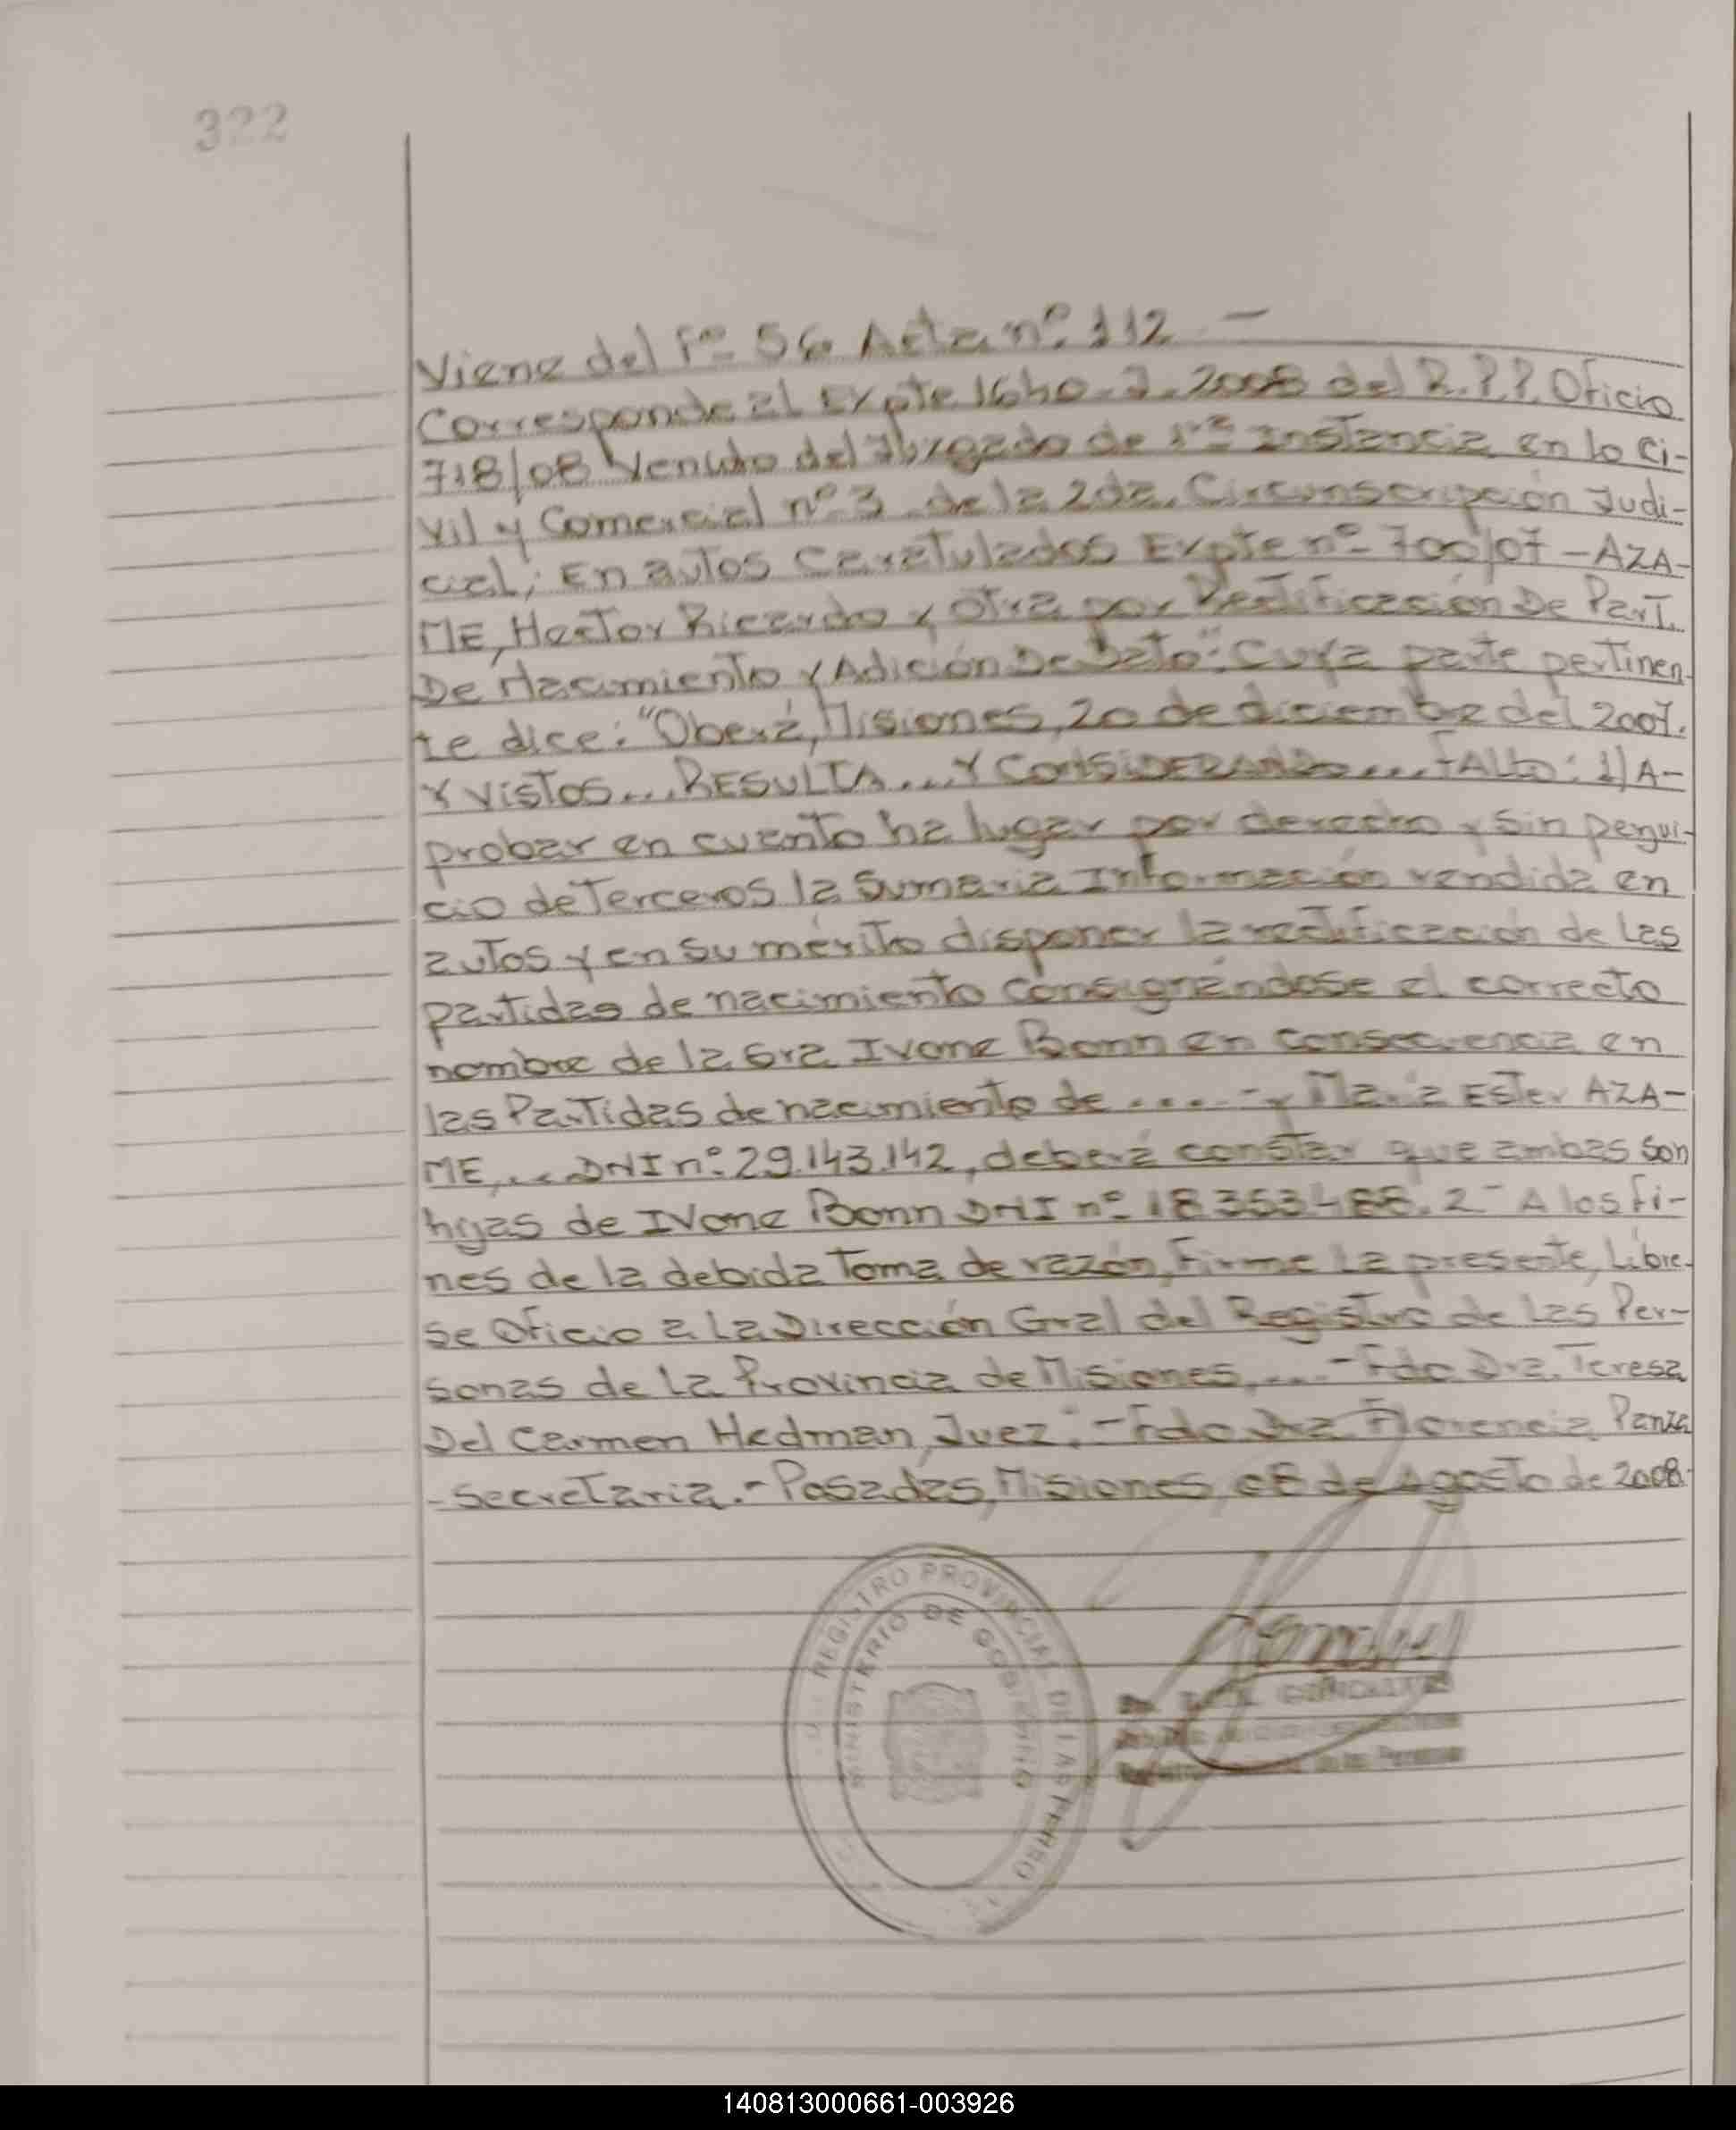 322
Viene del Fº 56 Acta nº 112 -
Corresponde al Expte 1640-J-2008 del R.P.P. Oficio
718/08 Venido del Juzgado de 1ra Instancia en lo Ci-
vil y Comercial nº 3 de la 2da. Circunscripción Judi-
cial; En autos Caratulados Expte nº 700/07 - AZA-
ME, Hector Ricardo y otra por Rectificación De Part.
De Nacimiento y Adición De Dato": Cuya parte pertinen
te dice: "Oberá, Misiones, 20 de diciembre del 2007.
Y VisTos... RESULTA... Y CONSIDERANDO... FALLO: 1) A-
probar en cuanto ha lugar por derecho y sin pergui-
cio de Terceros la Sumaria Información rendida en
autos y en su mérito disponer la rectificación de las
partidas de nacimiento consignándose el correcto
nombre de la Sra Ivone Bonn en consecuencia en
las Partidas de nacimiento de .... - y María Ester AZA-
ME, ... DNI nº 29.143.142, deberá constar que ambas son
hijas de Ivone Bonn DNI nº 18353488. 2- A los fi-
nes de la debida Toma de razón, Firme la presente, Libre-
se Oficio a la Dirección Gral del Registro de las Per-
sonas de la Provincia de Misiones, .... - Fdo Dra. Teresa
Del Carmen Hedman, Juez". - Fdo Dra Florencia Panza
- Secretaria. - Posadas, Misiones, 08 de Agosto de 2008-
REGISTRO PROVINCIAL DE LAS PERSO
MINISTERIO DE GOBIERNO
140813000661-003926